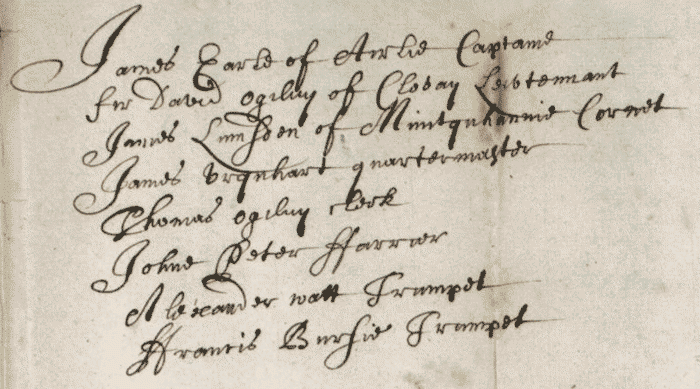 James Earle of Airlie Captane
Sir David Ogiluy of Clovay Leivtennant
James Lumsden of Mintquhannie Cornet
James Vrquhart quartermaster
Thomas Ogiluy clerk
Johne Peter ffarrier
Alexander watt Trumpet
ffrancis Trumpet